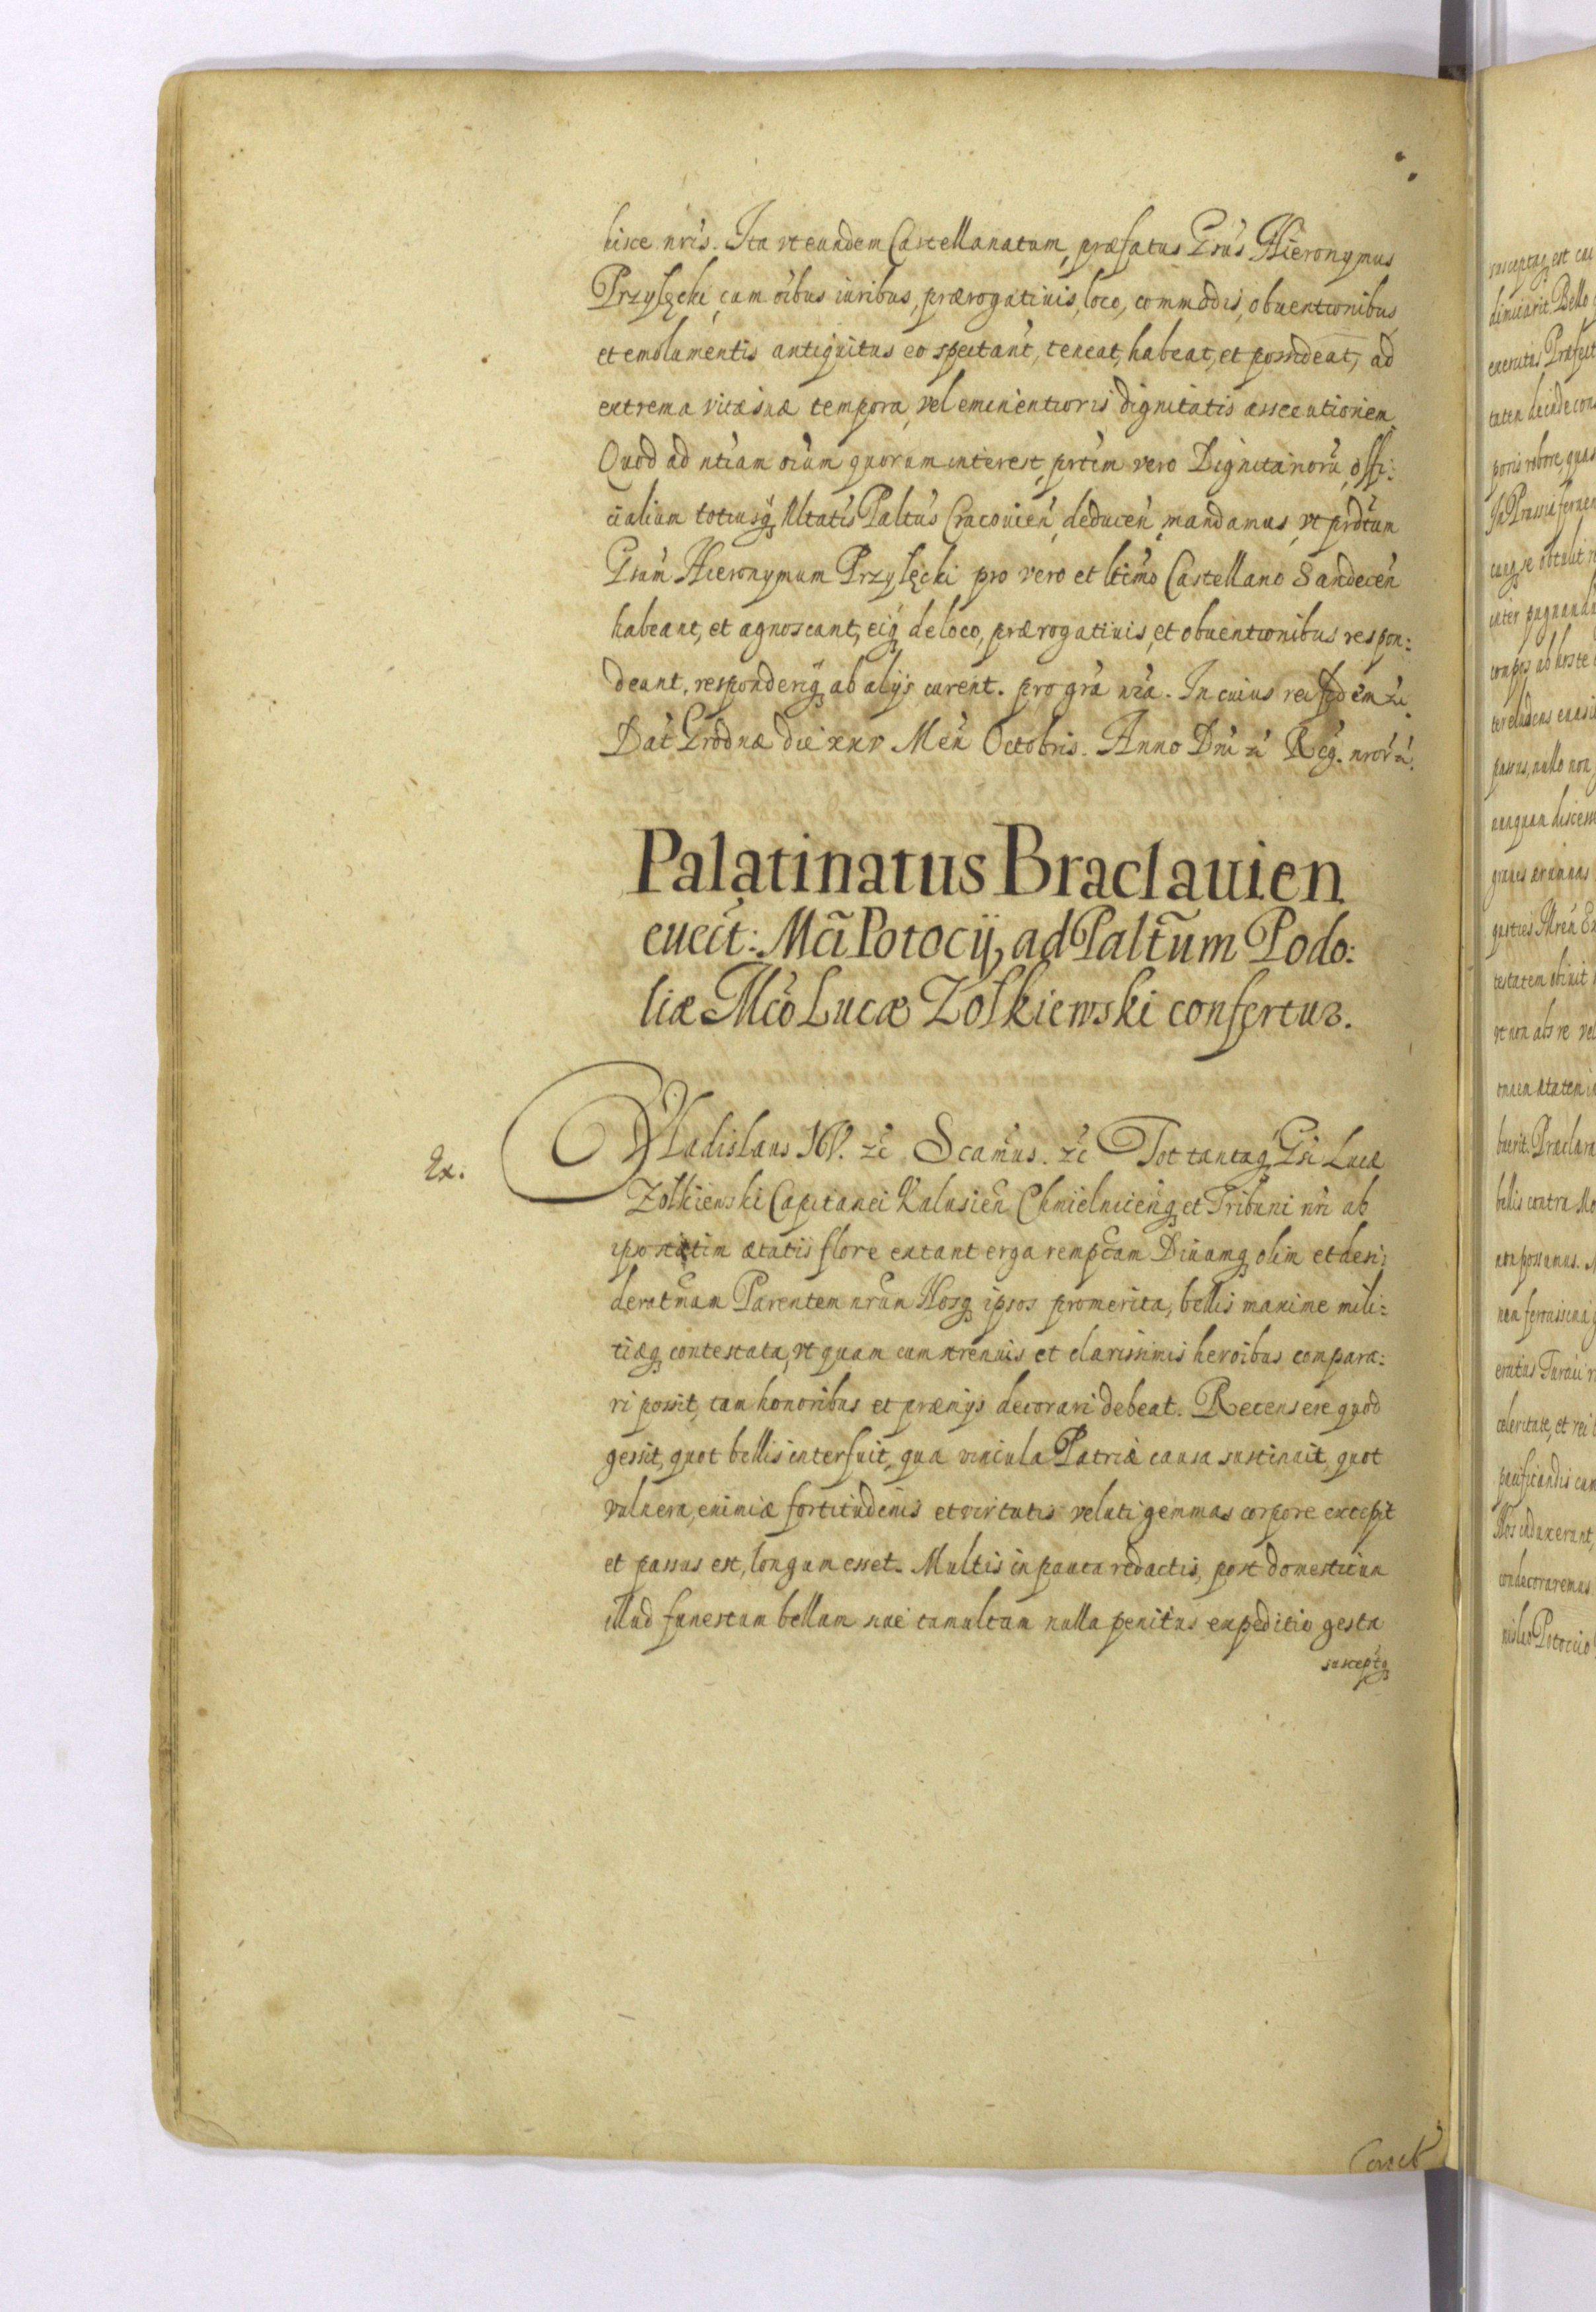 hisce nris. Ita vt eundem Castellanatum, præfatus Gsus Hieronymus
Przyłęcki, cum oibus iuribus, prærogatiuis, loco, commodis, obuentionibus
et emolumentis antiquitus eo spectant, teneat, habeat, et possideat, ad
extrema vitæ suæ tempora, vel eminentioris dignitatis assecutionem.
Quod ad ntiam oium quorum interest, prtim vero Dignitariorũ, offi:
cialium totiusq Nltatis Paltus Cracouien, deducen, mandamus, vt prdtum
Gsum Hieronymum Przyłęcki pro vero et ltimo Castellano Sandecen
habeant, et agnoscant, eiq de loco, prærogatiuis, et obuentionibus respon:
deant, responderiq ab alijs curent. pro gra nra. In cuius rei fidem zc.
Dat Grodnæ die xxv Men Octobris. Anno Dni zc Reg. nror zc.
Palatinatus Braclauien
euect: Mci Potocij, ad Paltum Podo:
liæ Mco Lucæ Zołkiewski confertur.
Ex.
Vladislaus IV. zc Scamus. zc Tot tantaq Gsi Lucæ
Zołkiewski Capitanei Kalusien Chmielnicenq et Tribuni nri ab
ipso statim ætatis flore extant erga rempcam Diuamq olim et desi:
deratmam Parentem nrum Nosq ipsos promerita, bellis maxime mili:
tiæq contestata, vt quam cum strenuis et clarissimis heroibus compara:
ri possit, tam honoribus et præmijs decorari debeat. Recensere quod
gessit, quot bellis interfuit, qua vincula Patriæ causa sustinuit, quot
vulnera, eximiæ fortitudinis et virtutis veluti gemmas corpore excepit
et passus est, longum esset. Multis in pauca redactis, post domesticum
illud funestum bellum siue tumultum nulla penitus expeditio gesta
susceptaq